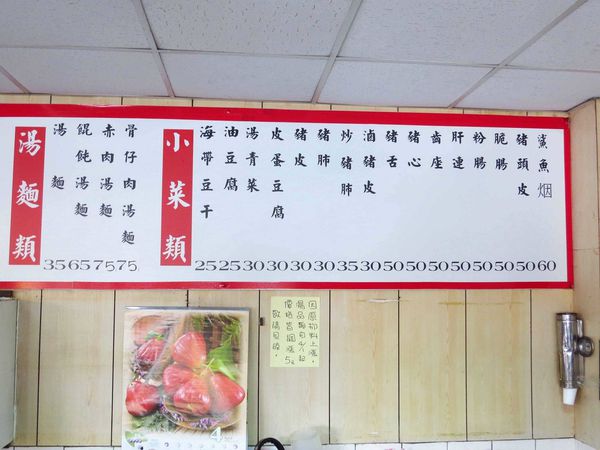 湯麵類
湯麵 35
餛飩湯麵 65
赤肉湯麵 75
骨仔肉湯麵 75
小菜類
海帶豆干 25
油豆腐 25
湯青菜 30
皮蛋豆腐 30
豬皮 30
豬肺 30
炒豬肺 35
滷豬皮 30
豬舌 50
豬心 50
齒座 50
肝連 50
粉腸 50
脆腸 50
豬頭皮 50
鯊魚烟 60
因原物料上漲。
湯品類自4/1起
價格皆調漲5元
敬請見諒。
4